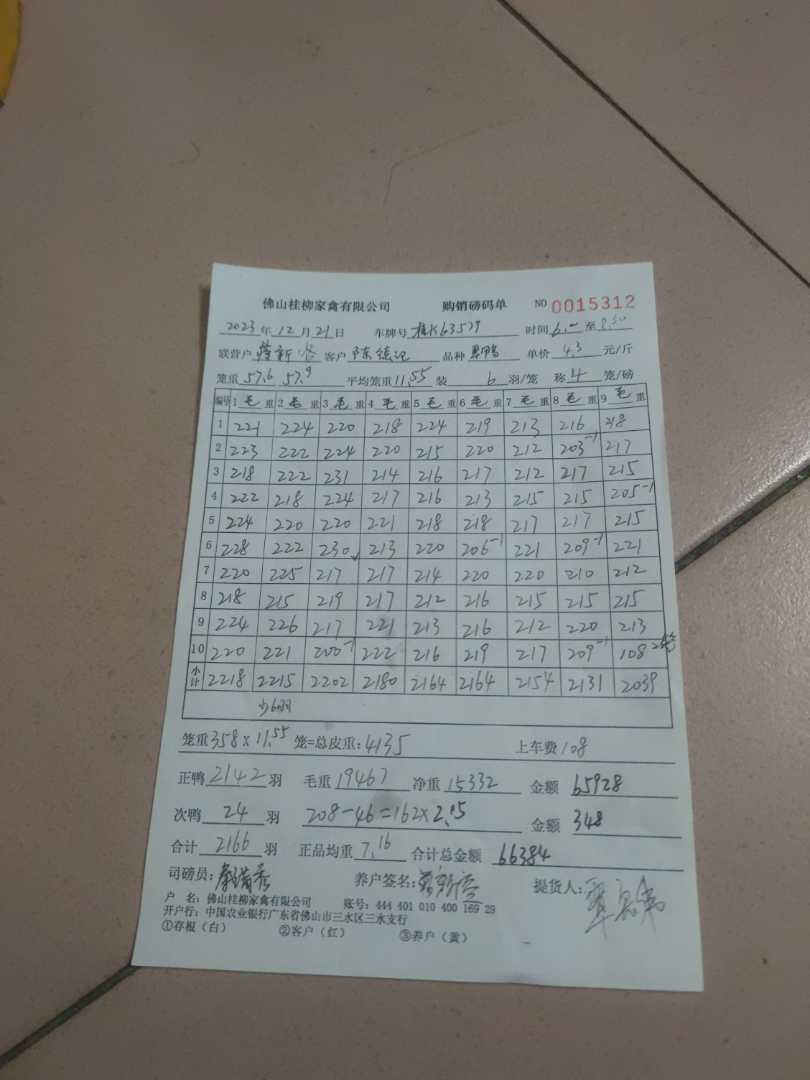 佛山桂柳家禽有限公司 购销磅码单 NO 0015312
2023年12月21日 车牌号 63579 时间 6.一 至 8.30
联营户 客户 陈 记 品种 鸭 单价 4.3 元/斤
笼重 57.6 57.9 平均笼重 11.55 装 6 羽/笼 称 4 笼/磅
编号 1 毛重 2 毛重 3 毛重 4 毛重 5 毛重 6 毛重 7 毛重 8 毛重 9 毛重
1 221 224 220 218 224 219 213 216 218
2 223 222 224 220 215 220 212 203-1 217
3 218 222 231 214 216 217 212 217 215
4 222 218 224 217 216 213 215 215 205-1
5 224 220 220 221 218 218 217 217 215
6 228 222 230 213 220 206-1 221 209-1 221
7 220 225 217 217 214 220 220 210 212
8 218 215 219 217 212 216 215 215 215
9 224 226 217 221 213 216 212 220 213
10 220 221 200-1 222 216 219 217 209-1 108 2笼
小计 2218 2215 2202 2180 2164 2164 2154 2131 2039
少6羽
笼重 358×11.55 笼=总皮重: 4135 上车费 108
正鸭 2142 羽 毛重 19467 净重 15332 金额 65928
次鸭 24 羽 208-46=162×2.15 金额 348
合计 2166 羽 正品均重 7.16 合计总金额 66384
司磅员: 养户签名: 提货人:
户 名: 佛山桂柳家禽有限公司 账号: 444 401 010 400 169 29
开户行: 中国农业银行广东省佛山市三水区三水支行
①存根（白） ②客户（红） ③养户（黄）